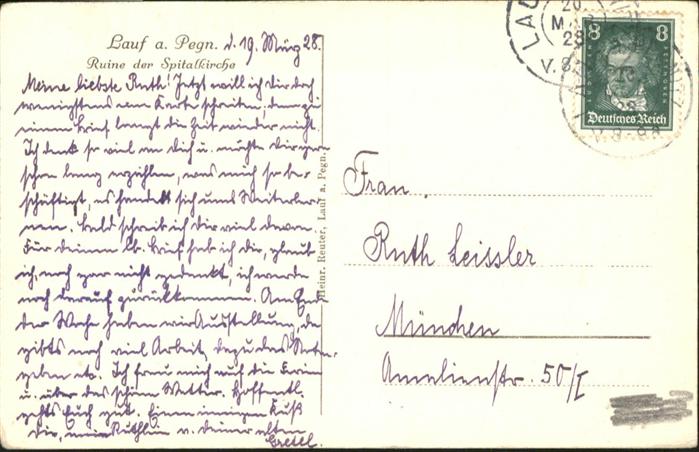 Lauf a. Pegn. d. 19. März 28.
Ruine der Spitalkirche
Meine liebste Ruth! Jetzt will ich dir doch
wenigstens eine Karte schreiben, denn zu
einem Brief langt die Zeit wieder nicht.
Ich denk so viel an dich u. möchte dir gern
schon lang erzählen, was mich so be-
schäftigt, es handelt sich ums Weiterler-
nen. bald schreib ich dir viel davon.
Für deinen lb. Brief hab ich dir, glaub
ich, noch gar nicht gedankt, ich werde
noch darauf zurückkommen. Am End
der Woche haben wir Ausstellung, da
gibts noch viel Arbeit, dazu das Noten-
geben etc. Ich freu mich auf die Ferien
u. über das schöne Wetter. Hoffentl.
gehts Euch gut. Einen innigen Kuß
dir, mein Ruthlein v. deiner alten
Gretel.
Heinr. Reuter, Lauf a. Pegn.
LAU
20
MRZ
28
V. 8
8 8
Deutsches Reich
V. 8-9
Frau
Ruth Leissler
München
Amalienstr. 50/I